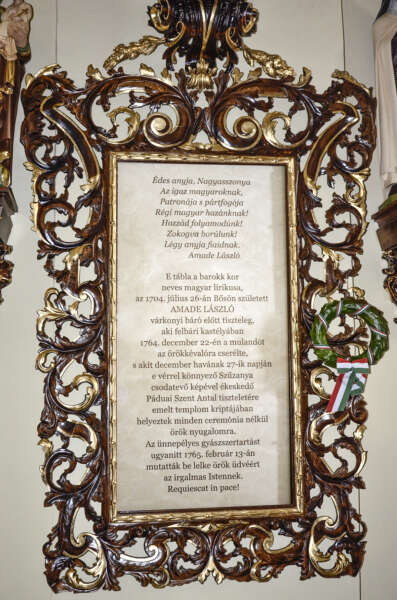 Édes anyja, Nagyasszonya
Az igaz magyaroknak,
Patronája s pártfogója
Régi magyar hazánknak!
Hozzád folyamodúnk!
Zokogva borúlunk!
Légy anyja fiaidnak.
Amade László
E tábla a barokk kor
neves magyar lírikusa,
az 1704. július 26-án Bősön született
AMADE LÁSZLÓ
várkonyi báró előtt tiszteleg,
aki felbári kastélyában
1764. december 22-én a mulandót
az örökkévalóra cserélte,
s akit december havának 27-ik napján
e vérrel könnyező Szűzanya
csodatevő képével ékeskedő
Páduai Szent Antal tiszteletére
emelt templom kriptájában
helyeztek minden ceremónia nélkül
örök nyugalomra.
Az ünnepélyes gyászszertartást
ugyanitt 1765. február 13-án
mutatták be lelke örök üdvéért
az irgalmas Istennek.
Requiescat in pace!